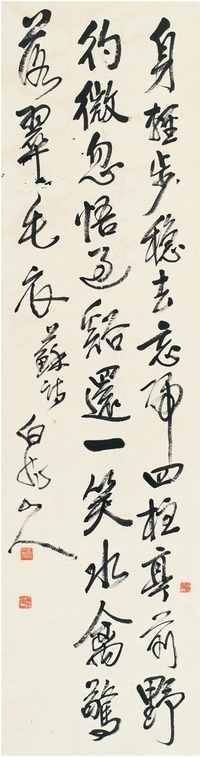 身輕步穩去忘歸四柱亭前野
彴微忽悟過谿還一笑水禽驚
落翠毛衣 蘇詩 白龍山人